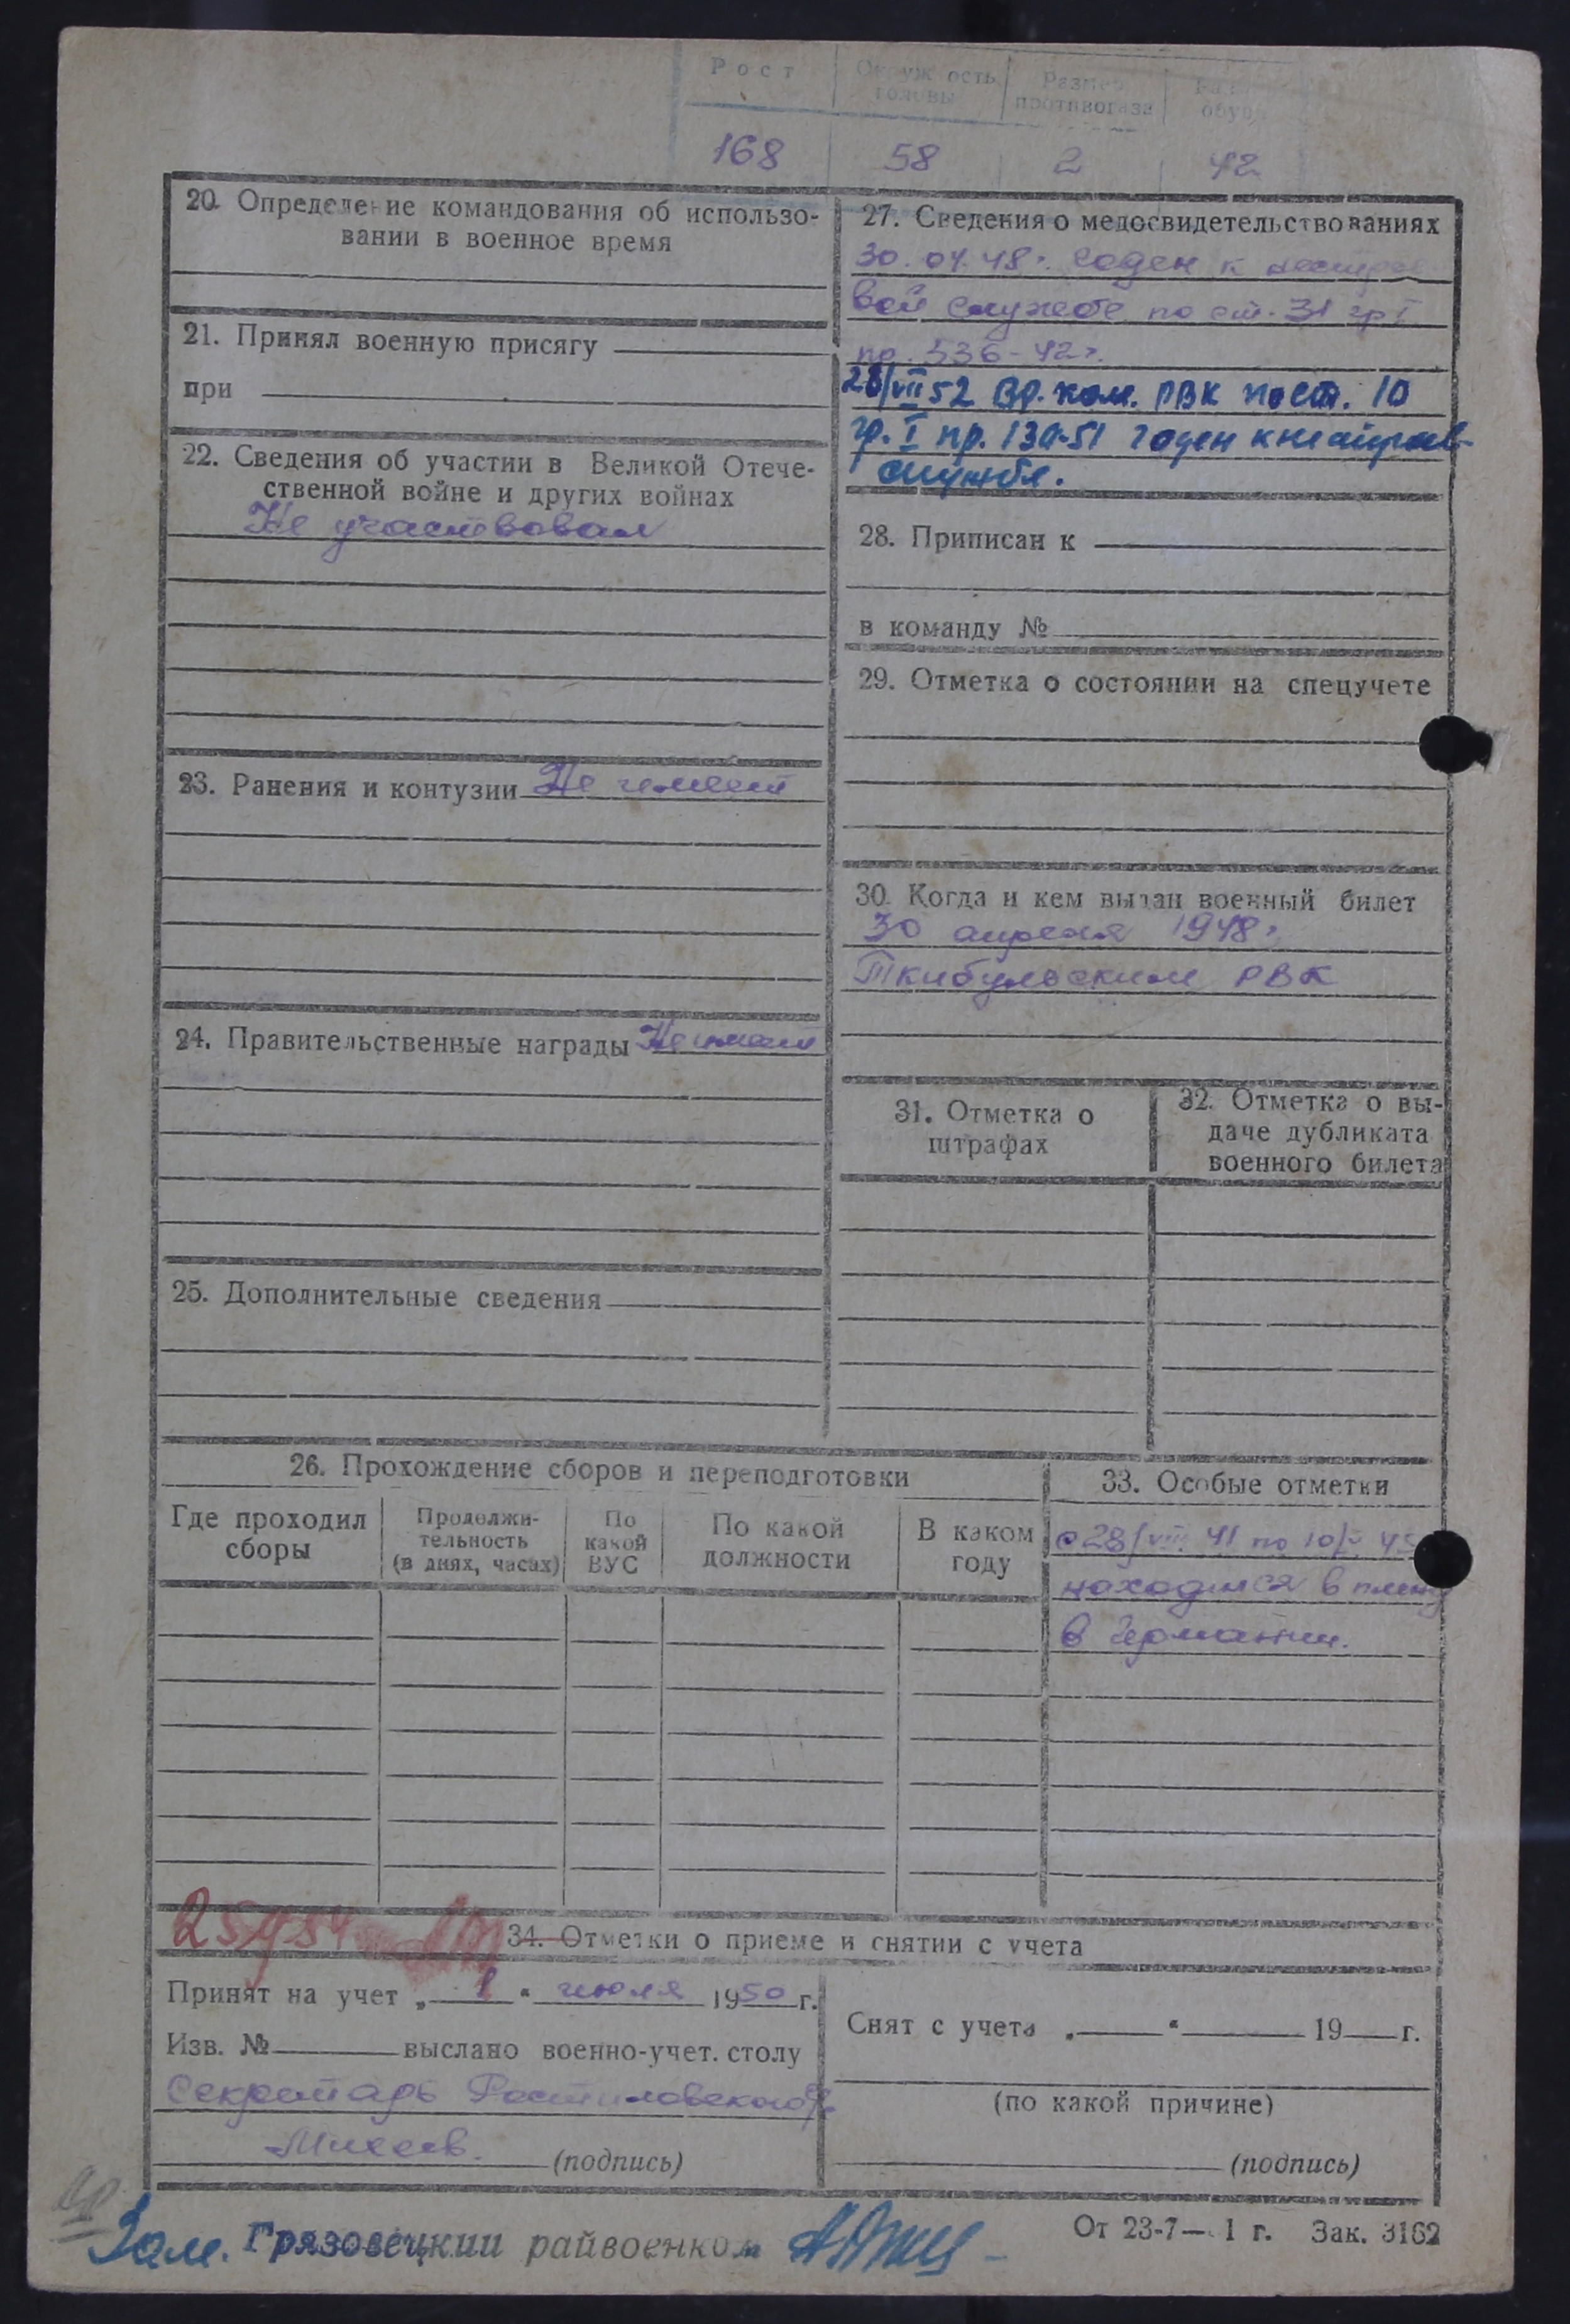 Рост
Окружность головы
Размер противогаза
обуви
168 58 2 42
20. Определение командования об использо-
вании в военное время
21. Принял военную присягу
при
22. Сведения об участии в Великой Отече-
ственной войне и других войнах
Не участвовал
23. Ранения и контузии Не имеет
24. Правительственные награды Не имеет
25. Дополнительные сведения
27. Сведения о медосвидетельствованиях
30.04.48г. годен к нестрое
вой службе по ст. 31 гр I
пр. 336-42г.
28/VII 52 Вр. ком. РВК по ст. 10
гр. I пр. 130-51 годен к нестроев-
службе.
28. Приписан к
в команду №
29. Отметка о состоянии на спецучете
30. Когда и кем выдан военный билет
30 апреля 1948г.
Ткибульским РВК
31. Отметка о
штрафах
32. Отметка о вы-
даче дубликата
военного билета
26. Прохождение сборов и переподготовки
Где проходил
сборы
Продолжи-
тельность
(в днях, часах)
По
какой
ВУС
По какой
должности
В каком
году
33. Особые отметки
с 28/VIII 41 по 10/V 45
находился в плену
в Германии.
34. Отметки о приеме и снятии с учета
Принят на учет „ 1 “ июля 1950 г.
Изв. № выслано военно-учет. столу
Секретарь Ростиловского с/с
Михеев. (подпись)
Снят с учета „ “ 19 г.
(по какой причине)
(подпись)
Зам. Грязовецкий райвоенком
От 23-7— 1 г. Зак. 3162